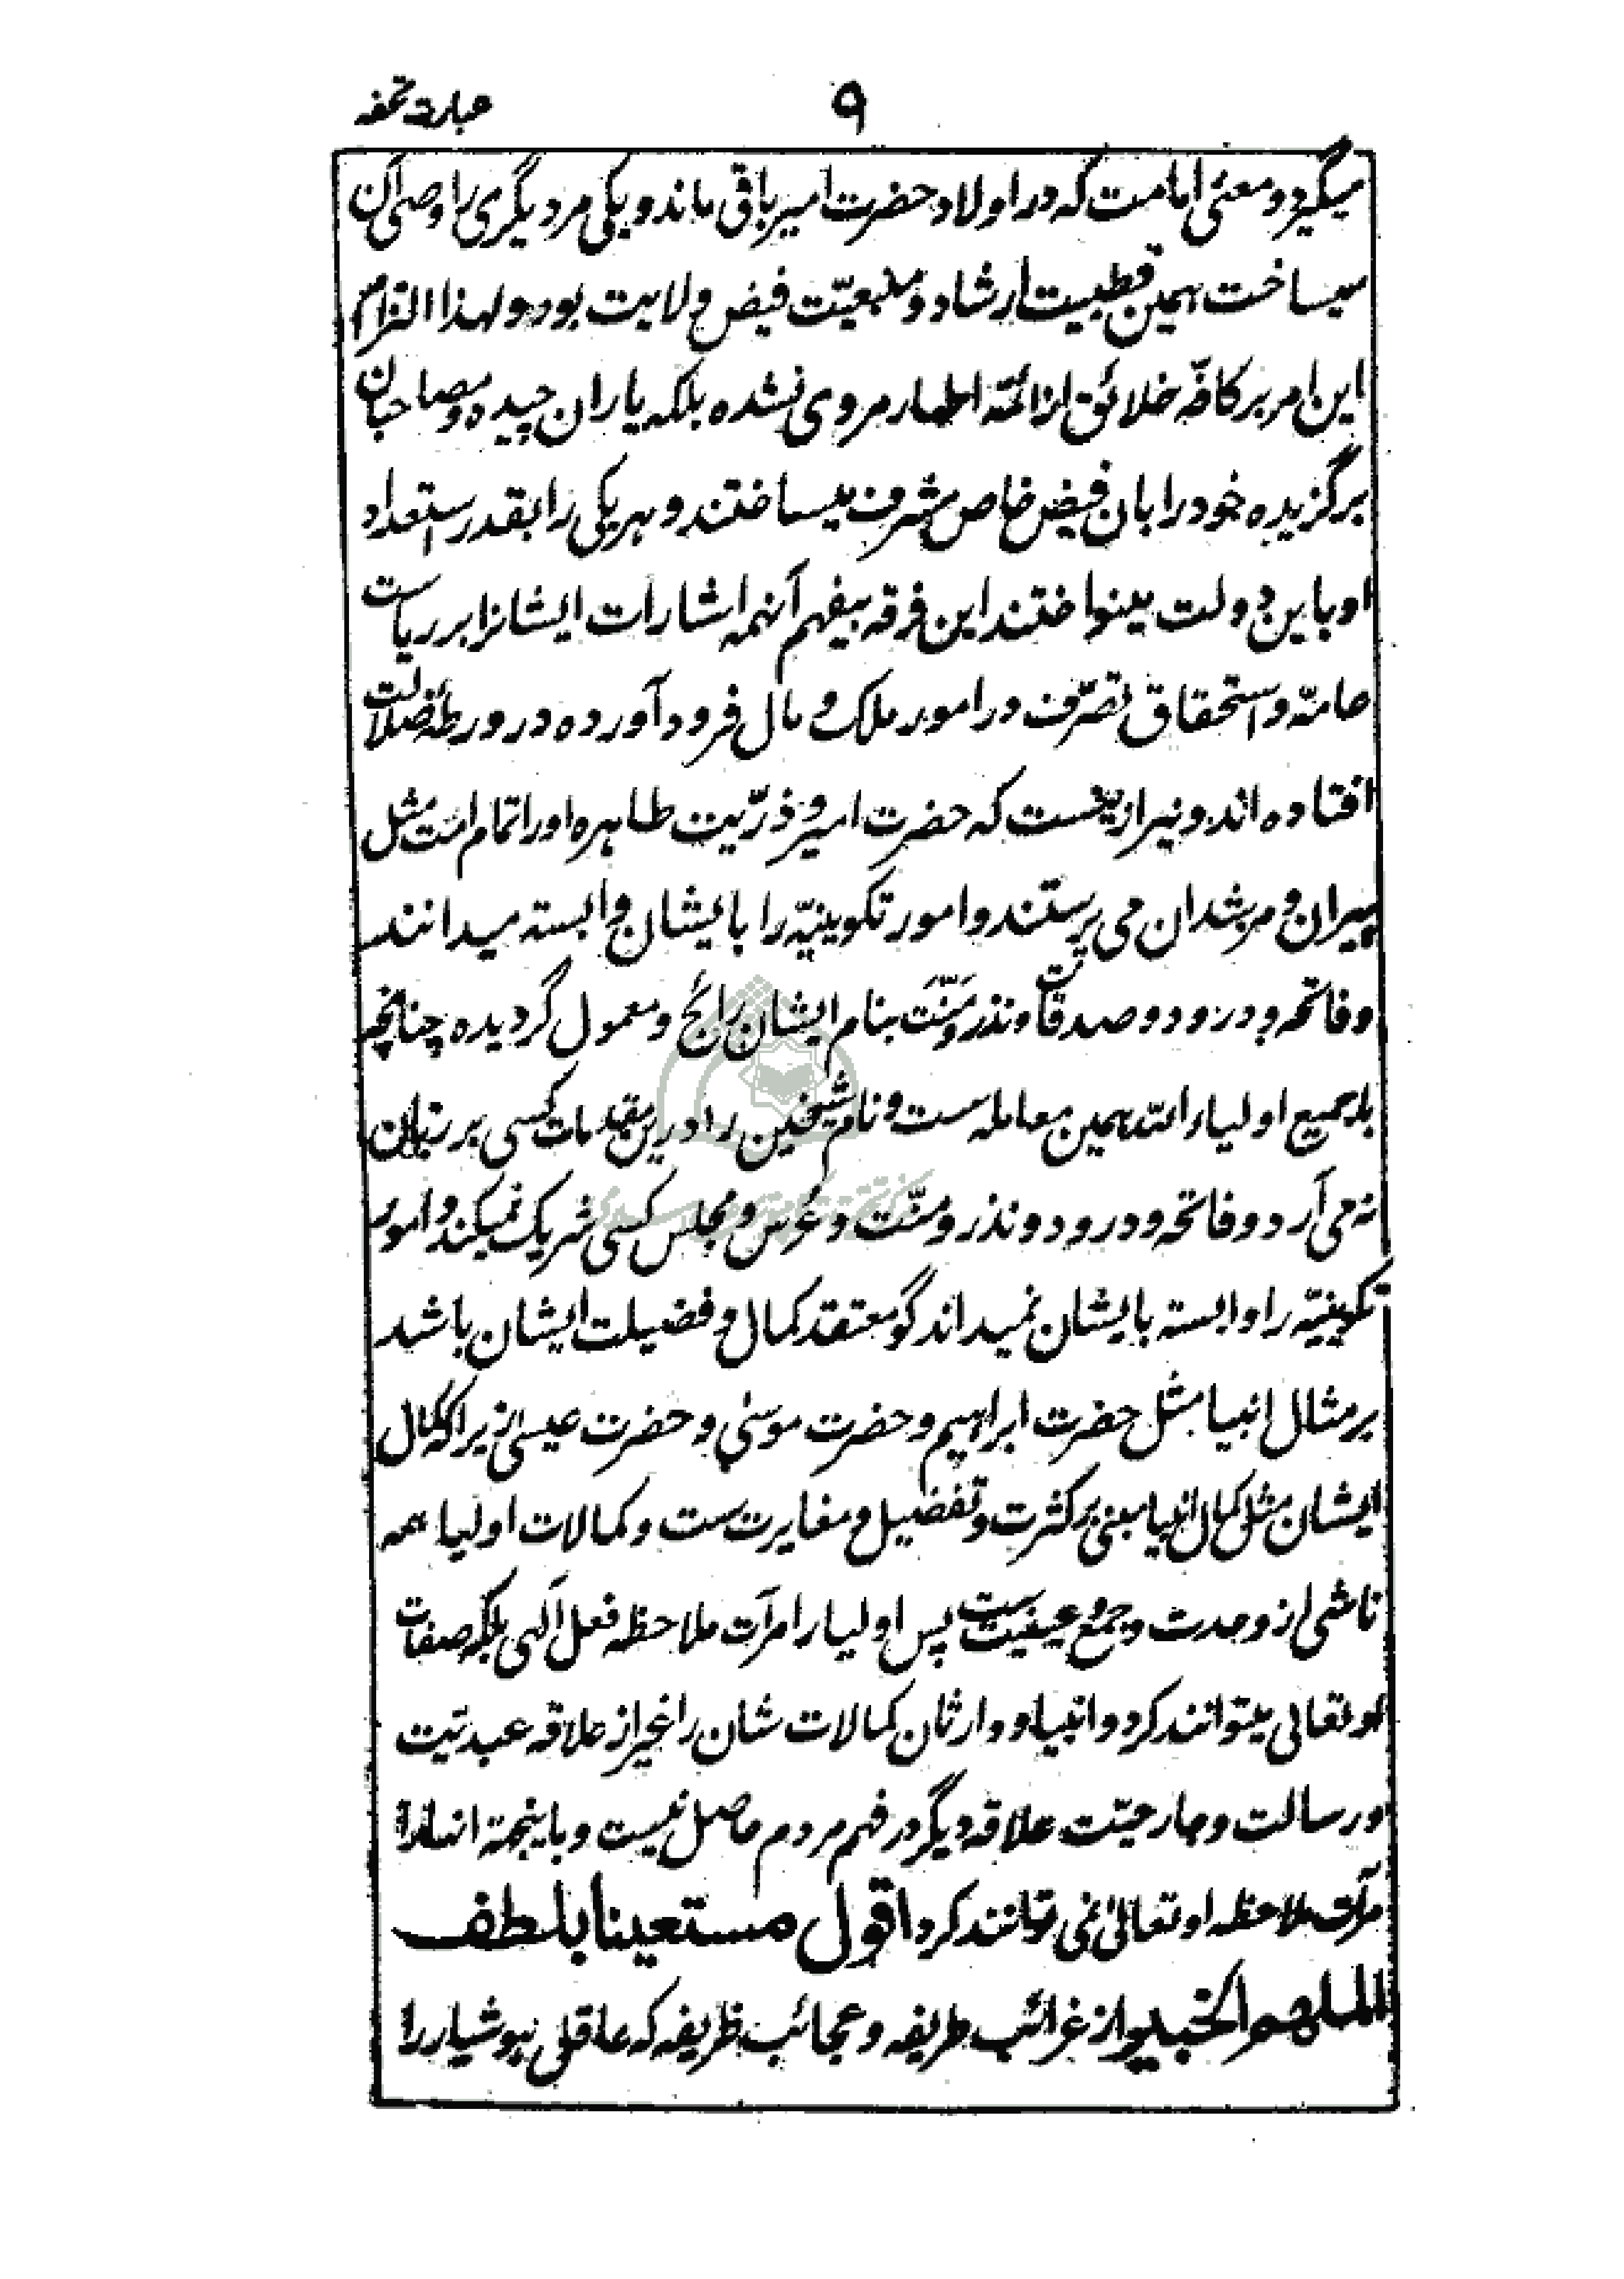 عبارت تحفه
۹
میگیرد و معنئ امامت که در اولاد حضرت امیر باقی ماند و یکی مر دیگری را وصی آن
میساخت همین قطبیت ارشاد و منبعیّت فیض ولایت بود و لهذا التزام
این امر بر کافّه خلائق از ائمّه اطهار مروی نشده بلکه یاران چیده و مصاحبان
برگزیده خود را بان فیض خاص مشرف میساختند و هر یکی را بقدر استعداد
او باین دولت مینواختند این فرقه بیفهم آنهمه اشارات ایشانرا بر ریاست
عامّه و استحقاق تصرّف در امور ملک و مال فرود آورده در ورطهٔ ضلالت
افتاده اند و نیز ازینجست که حضرت امیر و ذرّیت طاهره او را تمام امّت مثل
پیران و مرشدان می پرستند و امور تکوینیّه را بایشان وابسته میدانند
و فاتحه و درود و صدقات و نذر و منّت بنام ایشان رائج و معمول گردیده چنانچه
با جمیع اولیاء الله همین معامله ست و نام شیخین را درین مقدمات کسی بر زبان
نه می آرد و فاتحه و درود و نذر و منّت و عُرس و مجلس کسی شریک نمیکند و امور
تکوینیّه را وابسته بایشان نمیداند گو معتقد کمال و فضیلت ایشان باشد
بر مثال انبیا مثل حضرت ابراهیم و حضرت موسیٰ و حضرت عیسیٰ زیرا که کمال
ایشان مثل کمال انبیا مبنی بر کثرت و تفضیل و مغایرت ست و کمالات اولیا همه
ناشی از وحدت و جمع و عینیت ست پس اولیا را مرآت ملاحظه فعل آلهی بلکه صفات
او تعالی میتوانند کرد و انبیا و وارثان کمالات شان را غیر از علاقه عبدیّت
و رسالت و جارحیّت علاقه دیگر در فهم مردم حاصل نیست و باینجهة انها را
مرآت ملاحظه او تعالیٰ نمی توانند کرد اقول مستعینا بلطف
الملهم الخبیر از غرائب طریفه و عجائب ظریفه که عاقلی هوشیار را